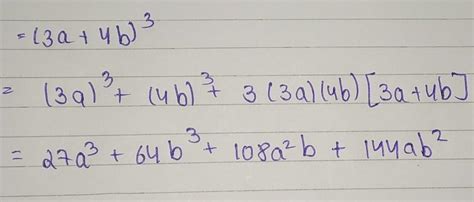 = (3a + 4b)³
= (3a)³ + (4b)³ + 3(3a)(4b)[3a+4b]
= 27a³ + 64b³ + 108a²b + 144ab²